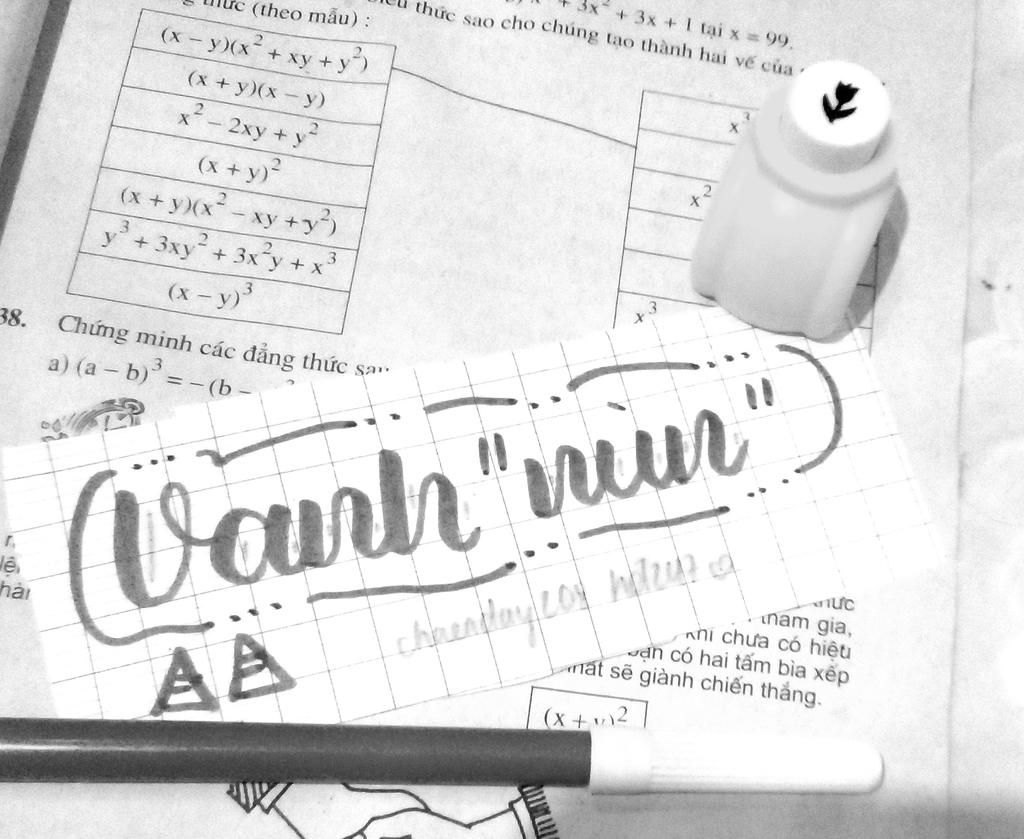 thức (theo mẫu) :
+ 3x² + 3x + 1 tại x = 99.
thức sao cho chúng tạo thành hai vế của
(x − y)(x² + xy + y²)
(x + y)(x − y)
x² − 2xy + y²
(x + y)²
(x + y)(x² − xy + y²)
y³ + 3xy² + 3x²y + x³
(x − y)³
x³
x²
x³
38. Chứng minh các đẳng thức sau
a) (a − b)³ = −(b −
Vanh "mùn"
thức
tham gia,
khi chưa có hiệu
bạn có hai tấm bìa xếp
nhất sẽ giành chiến thắng.
(x + y)²